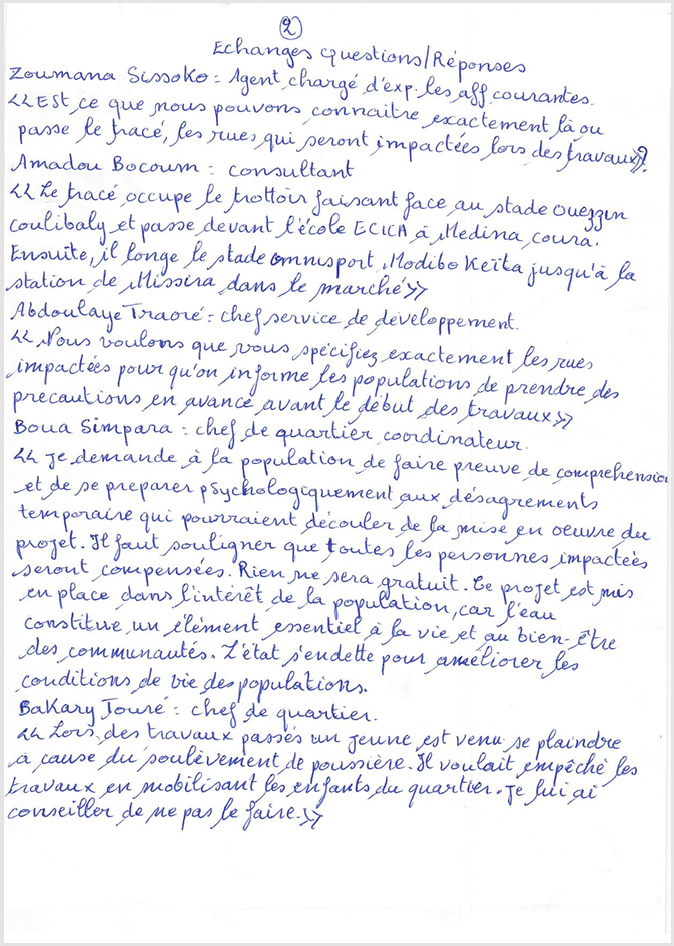 2
Echanges Questions/Réponses
Zoumana Sissoko: Agent chargé d'exp. les aff courantes.
<<Est ce que nous pouvons connaitre exactement là ou
passe le tracé, les rues qui seront impactées lors des travaux>>?
Amadou Bocoum: consultant
<<Le tracé occupe le trottoir faisant face au stade ouezzin
coulibaly et passe devant l'école ECICA à Medina coura.
Ensuite, il longe le stade omnisport Modibo Keïta jusqu'à la
station de Missira dans le marché>>
Abdoulaye Traoré: chef service de développement.
<<Nous voulons que vous spécifiez exactement les rues
impactées pour qu'on informe les populations de prendre des
precautions en avance avant le début des travaux>>
Boua Simpara: chef de quartier coordinateur.
<<Je demande à la population de faire preuve de comprehension
et de se preparer psychologiquement aux désagrements
temporaire qui pourraient découler de la mise en oeuvre du
projet. Il faut souligner que toutes les personnes impactées
seront compensées. Rien ne sera gratuit. Ce projet est mis
en place dans l'intérêt de la population, car l'eau
constitue un élément essentiel à la vie et au bien-être
des communautés. L'état s'endette pour améliorer les
conditions de vie des populations.
Bakary Touré: chef de quartier.
<<Lors des travaux passés un jeune est venu se plaindre
à cause du soulèvement de poussière. Il voulait empêché les
travaux en mobilisant les enfants du quartier. Je lui ai
conseiller de ne pas le faire.>>